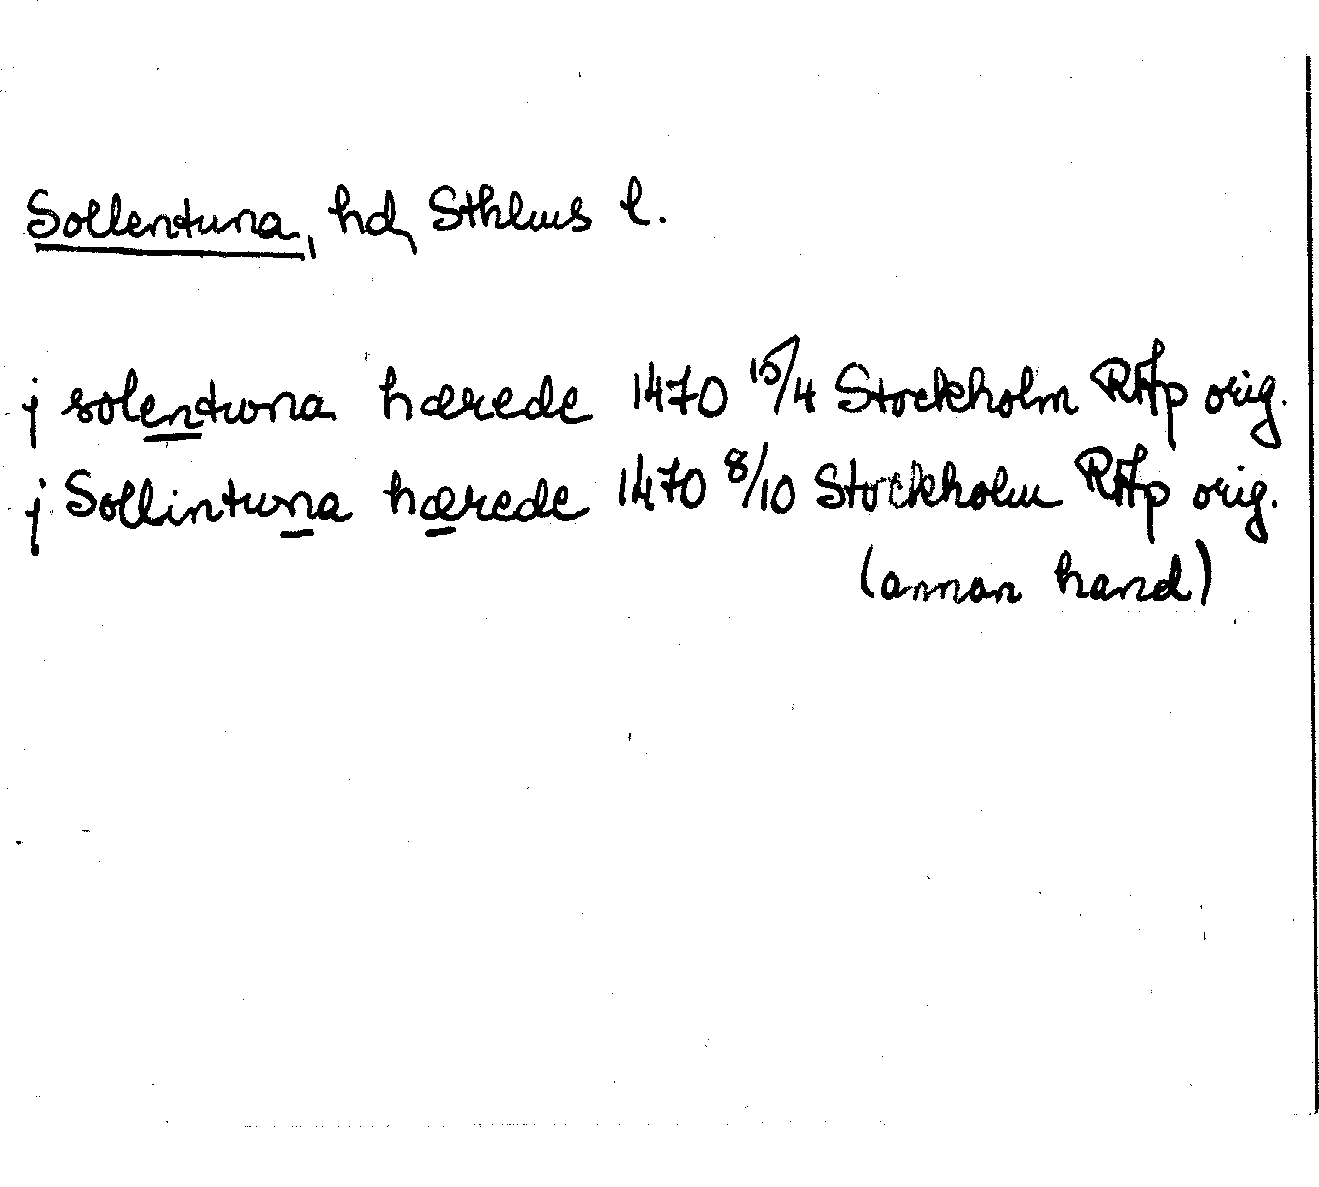 Sollentuna, hd, Sthlms l.
j solentuna hærede 1470 15/4 Stockholm RAp orig.
j Sollintuna hærede 1470 8/10 Stockholm RAp orig.
(annan hand)